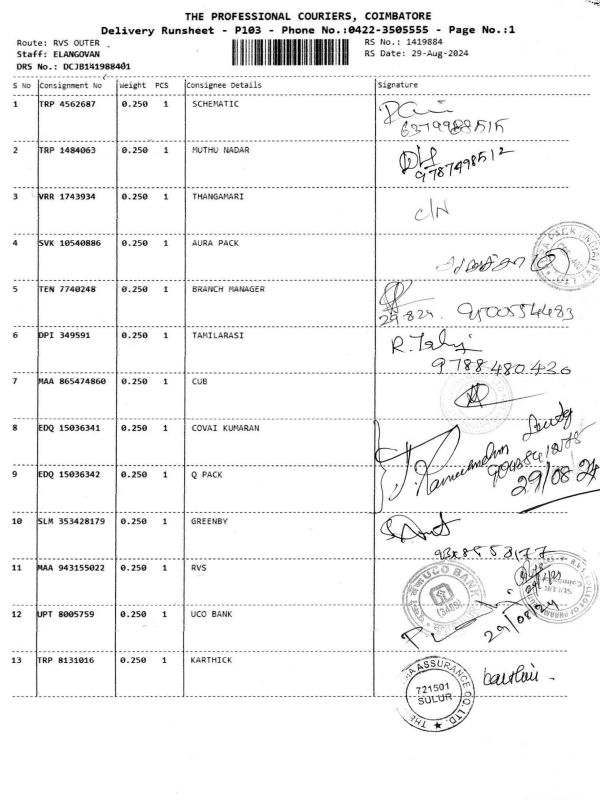 THE PROFESSIONAL COURIERS, COIMBATORE
Delivery Runsheet - P103 - Phone No.:0422-3505555 - Page No.:1
Route: RVS OUTER RS No.: 1419884
Staff: ELANGOVAN RS Date: 29-Aug-2024
DRS No.: DCJB141988401
S No Consignment No Weight PCS Consignee Details Signature
1 TRP 4562687 0.250 1 SCHEMATIC
6379988515
2 TRP 1484063 0.250 1 MUTHU NADAR
9787498512
3 VRR 1743934 0.250 1 THANGAMARI C/N
4 SVK 10540886 0.250 1 AURA PACK
5 TEN 7740248 0.250 1 BRANCH MANAGER
29.824. 9500554483
6 DPI 349591 0.250 1 TAMILARASI
9788480430
7 MAA 865474860 0.250 1 CUB
8 EDQ 15036341 0.250 1 COVAI KUMARAN
9 EDQ 15036342 0.250 1 Q PACK
29/08/24
10 SLM 353428179 0.250 1 GREENBY
11 MAA 943155022 0.250 1 RVS
UCO BANK
SULUR
12 UPT 8005759 0.250 1 UCO BANK
29/08/24
13 TRP 8131016 0.250 1 KARTHICK
ASSURANCE CO. LTD.
721501
SULUR